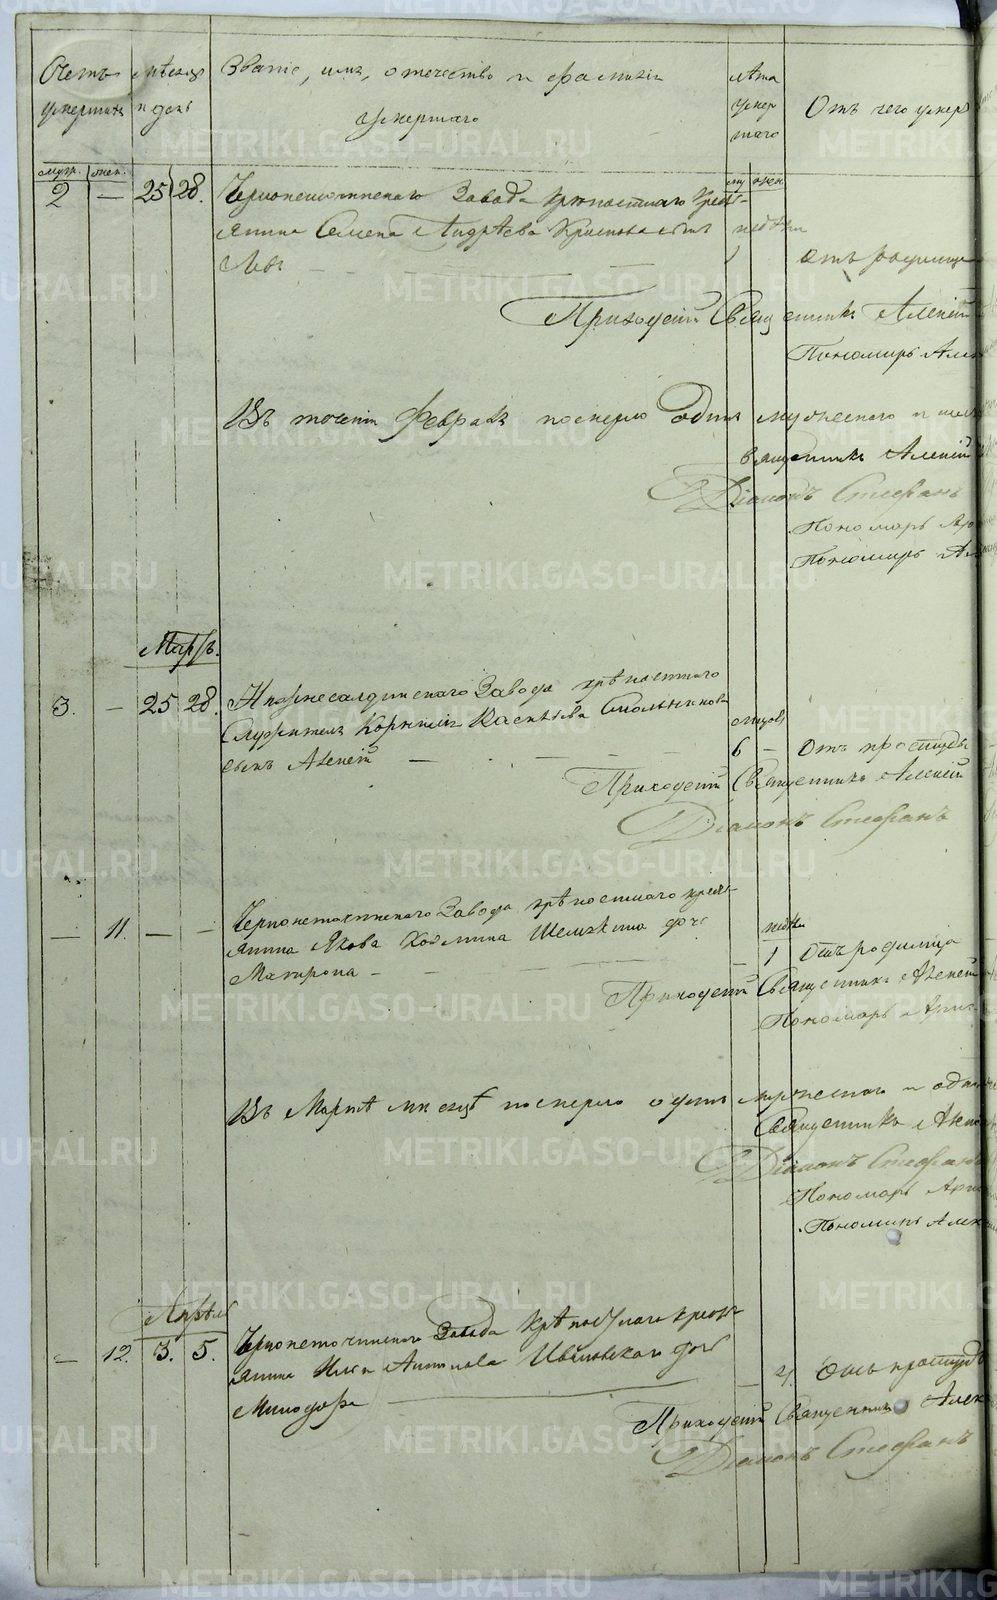 Счетъ умершихъ
мѣсяцъ и день
Званіе, имя, отечество и фамилія
умершаго
лѣта умершаго
Отъ чего умеръ
муж. жен.
му жен
2 — 25 28. Черноисточинскаго Завода крѣпостнаго крес-
янина Семена Андрѣева сынъ недѣли
Левъ — 1 Отъ родимца
Приходскій Священникъ Алексій
Пономарь Алек
Въ теченіи Февраля померло одинъ мужескаго и
Священникъ Алексій
Діаконъ Стефанъ
Пономарь
Пономарь Ал
Мартъ.
3. — 25 28. Нижнесалдинскаго Завода крѣпостнаго
Служителя Корнилія Васильева Смольникова
сынъ Алексій — — — —
мѣсяцовъ
6 — Отъ простуды
Приходскій Священникъ Алексій
Діаконъ Стефанъ
— 11. — — Черноисточинскаго Завода крѣпостнаго крест-
янина Якова Козмина дочь
Матрона —
недѣли
— 1 Отъ родимца
Приходскій Священникъ Алексей
Пономарь
Въ Мартѣ месяцѣ померло одинъ мужескаго и одна
Священникъ Алексі
Діаконъ Стефанъ
Пономарь
Пономарь Алек
Апрѣль
— 12. 3. 5. Черноисточинскаго Завода крѣпостнаго крест
янина Ильи Антонова дочь
Минодора
— 4. Отъ простуды
Приходскій Священникъ Алек
Діаконъ Стефанъ
METRIKI.GASO-URAL.RU